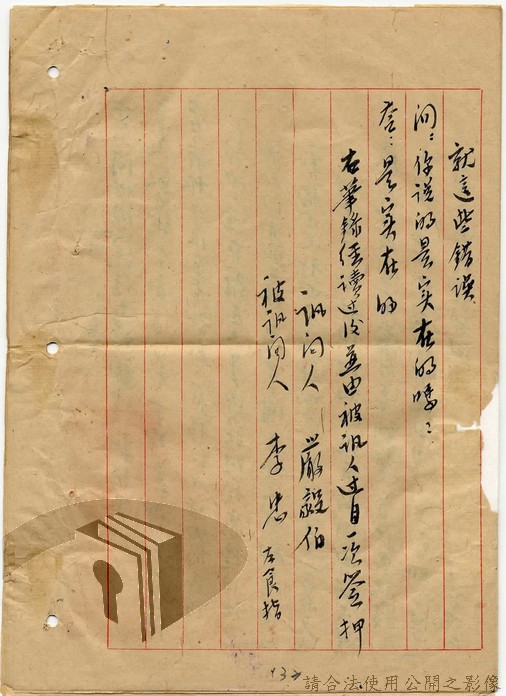 就這些錯誤
问：你说的是实在的嗎：
答：是实在的
右筆錄经讀过後並由被讯人过目一次簽押
讯问人　嚴毅伯
被讯问人　李忠　左食指
（3）
請合法使用公開之影像